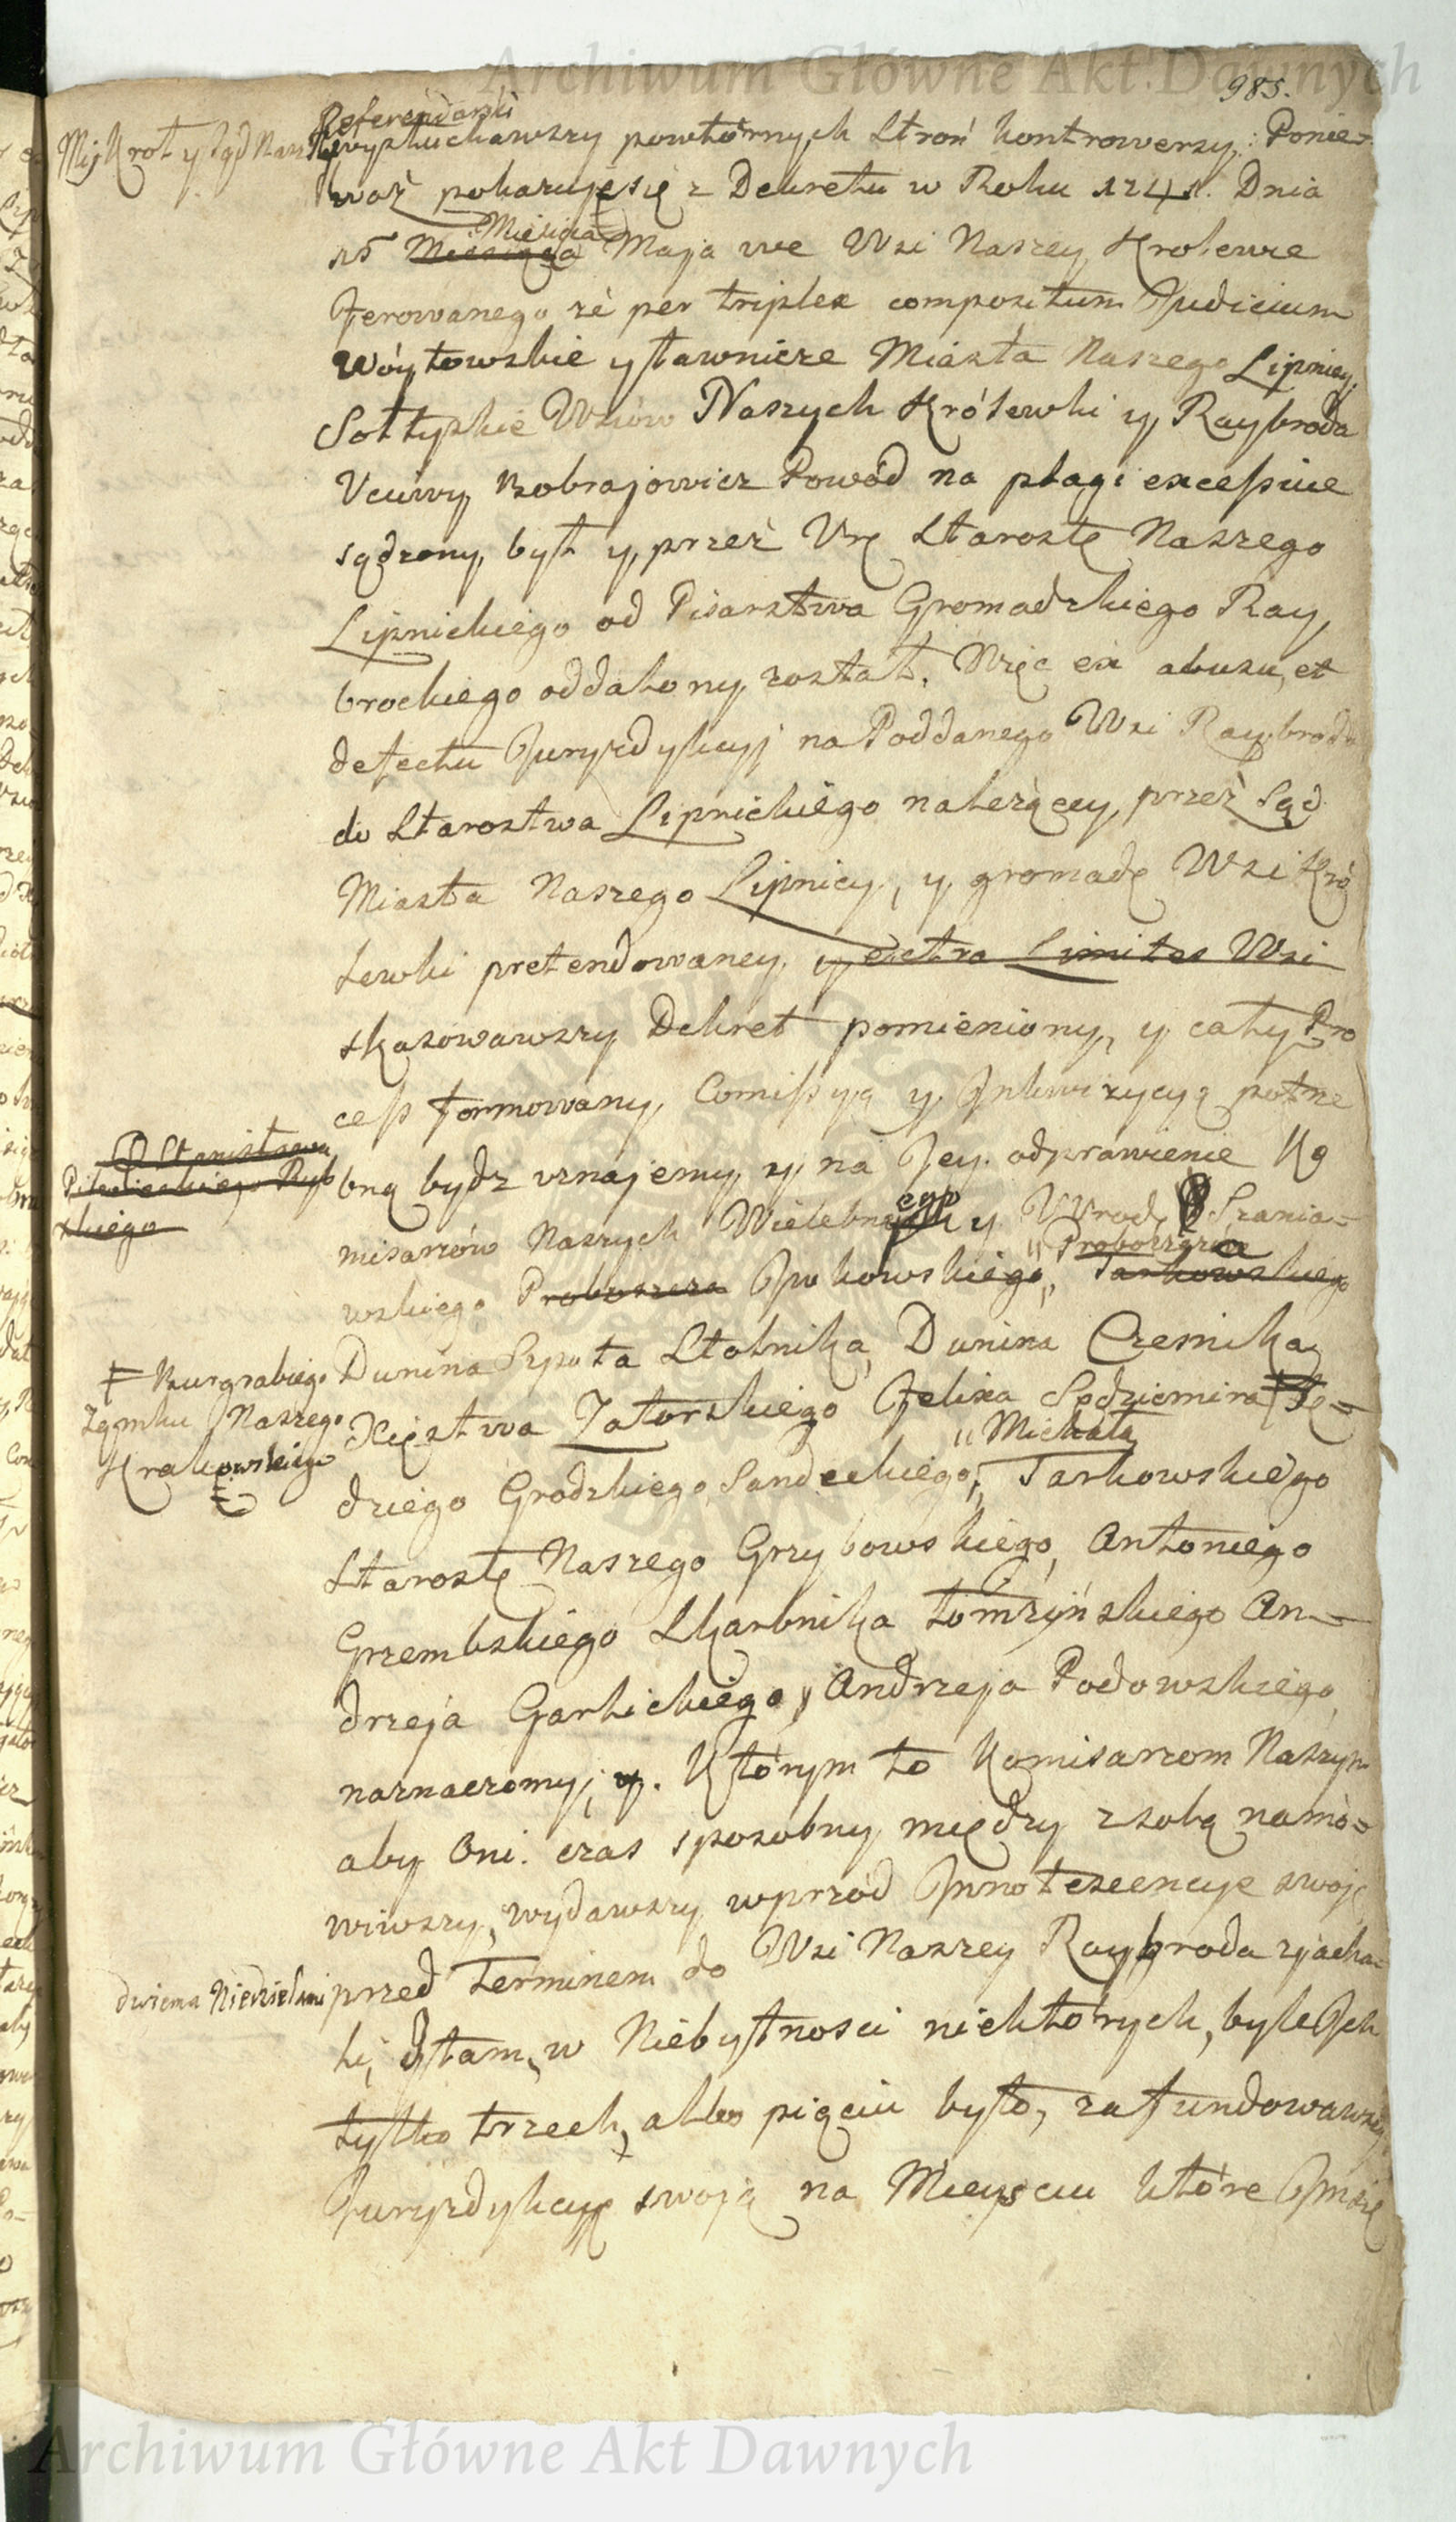 Archiwum Główne Akt Dawnych
985.
Referendarski
My Krol y Sąd Nasz wysłuchawszy powtórnych Stron kontrowersyy: Ponie-
waż pokazuje się z Dekretu w Roku 1741. Dnia
Miesiąca
15 Miesiąca Maja we Wsi Naszey Krolewce
ferowanego że per triplex compositum Judicium
Wóytowskie y ławnicze Miasta Naszego Lipnicy,
Sołtyskie Wsiów Naszych Królewki y Raybroda
Uczciwy Kobrajowicz Powód na plagi excessive
sądzony był y przez Vrę Starostę Naszego
Lipnickiego od Pisarstwa Gromadzkiego Ray,
brockiego oddalony został. Więc ex abusu, et
defectu Juryzdykcyj na Poddanego Wsi Raybroda
do Starostwa Lipnickiego należącey, przez Sąd
Miasta Naszego Lipnicy, y gromadę Wsi Kró
lewki pretendowaney, y extra Limites Wsi
skasowawszy Dekret pomieniony, y cały Pro
cess formowany, Comissyą y Inkwizycyą potrze
bną bydz uznajemy, y na Jey odprawienie Ko
P Stanisława
skiego
misarzów Naszych Wielebnego y Vrod. Szania-
wskiego Proboszcza Jwkowskiego, Tarkowskiego
Proboszcza
Dunina Szpota Stolnika, Dunina Czesnika
‡ Burgrabiego
Zamku Naszego
Krakowskiego
Xięstwa Zatorskiego Felixa Sędziemira ‡ Sę-
" Michała
dziego Grodzkiego Sandeckiego, Tarkowskiego
Starostę Naszego Grzybowskiego, Antoniego
Grzembskiego Skarbnika Łomżyńskiego An-
drzeja Garlickiego, Andrzeja Podowskiego,
naznaczomy; y. Którym to Komisarzom Naszym
aby Oni czas sposobny między zsobą namó-
wiwszy, wydawszy wprzód Innotescencye swoję
dwiema Niedzielami przed Terminem do Wsi Naszey Raybroda zjacha-
li, y tam, w Niebytnosci niektórych, byle Jch
tylko trzech, albo pięciu było, zafundowawszy
Juryzdykcyę swoją na Mieyscu które Jmsię
Archiwum Główne Akt Dawnych